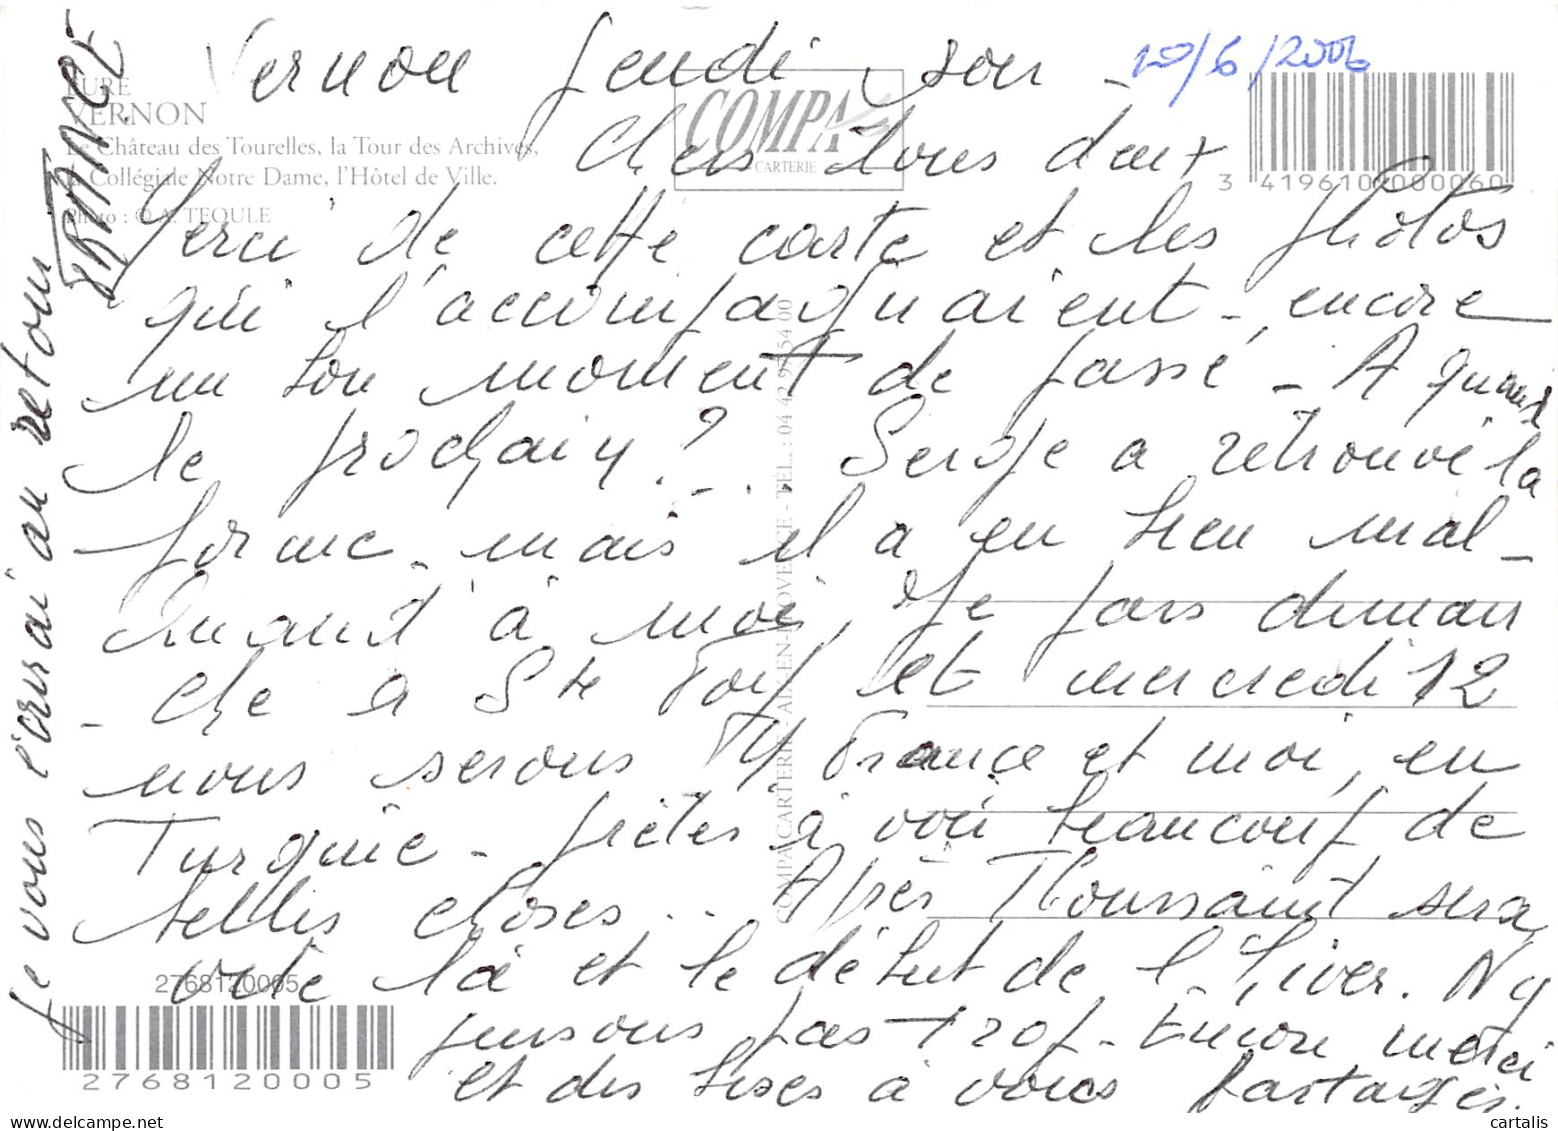 Vernon Jeudi soir - 10/6/2006
EURE
VERNON
Le Château des Tourelles, la Tour des Archives,
la Collégiale Notre Dame, l'Hôtel de Ville.
Photo : © A. TEQULE
COMPA
CARTERIE
3 419610 000060
Chers tous deux
Merci de cette carte et les photos
qui l'accompagnaient - encore
un bon moment de passé - A quand
le prochain ? ... Serge a retrouvé la
forme - mais il a eu bien mal -
Quant à moi, je pars diman
- che à Ste Foy et mercredi 12
nous serons France et moi, en
Turquie - prêtes à voir beaucoup de
belles choses ... Après Toussaint sera
vite là et le début de l'hiver. N'y
pensons pas trop - Encore merci
et des bises à vous partager.
Je vous l'écrirai au retour
FRANCE
COMPA CARTERIE - AIX-EN-PROVENCE - TÉL. : 04 42 97 54 00
2768120005
2768120005
cartalis